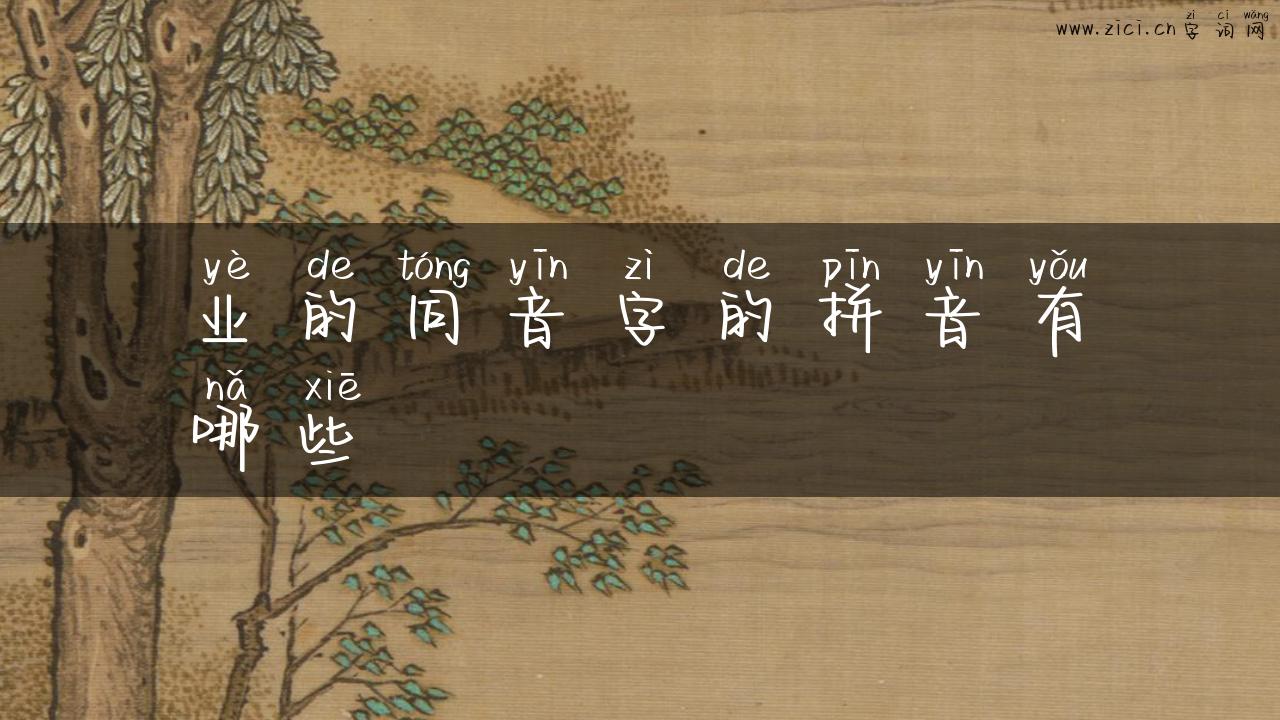 zì cí wǎng
www.zici.cn 字 词 网
yè de tóng yīn zì de pīn yīn yǒu
业 的 同 音 字 的 拼 音 有
nǎ xiē
哪 些